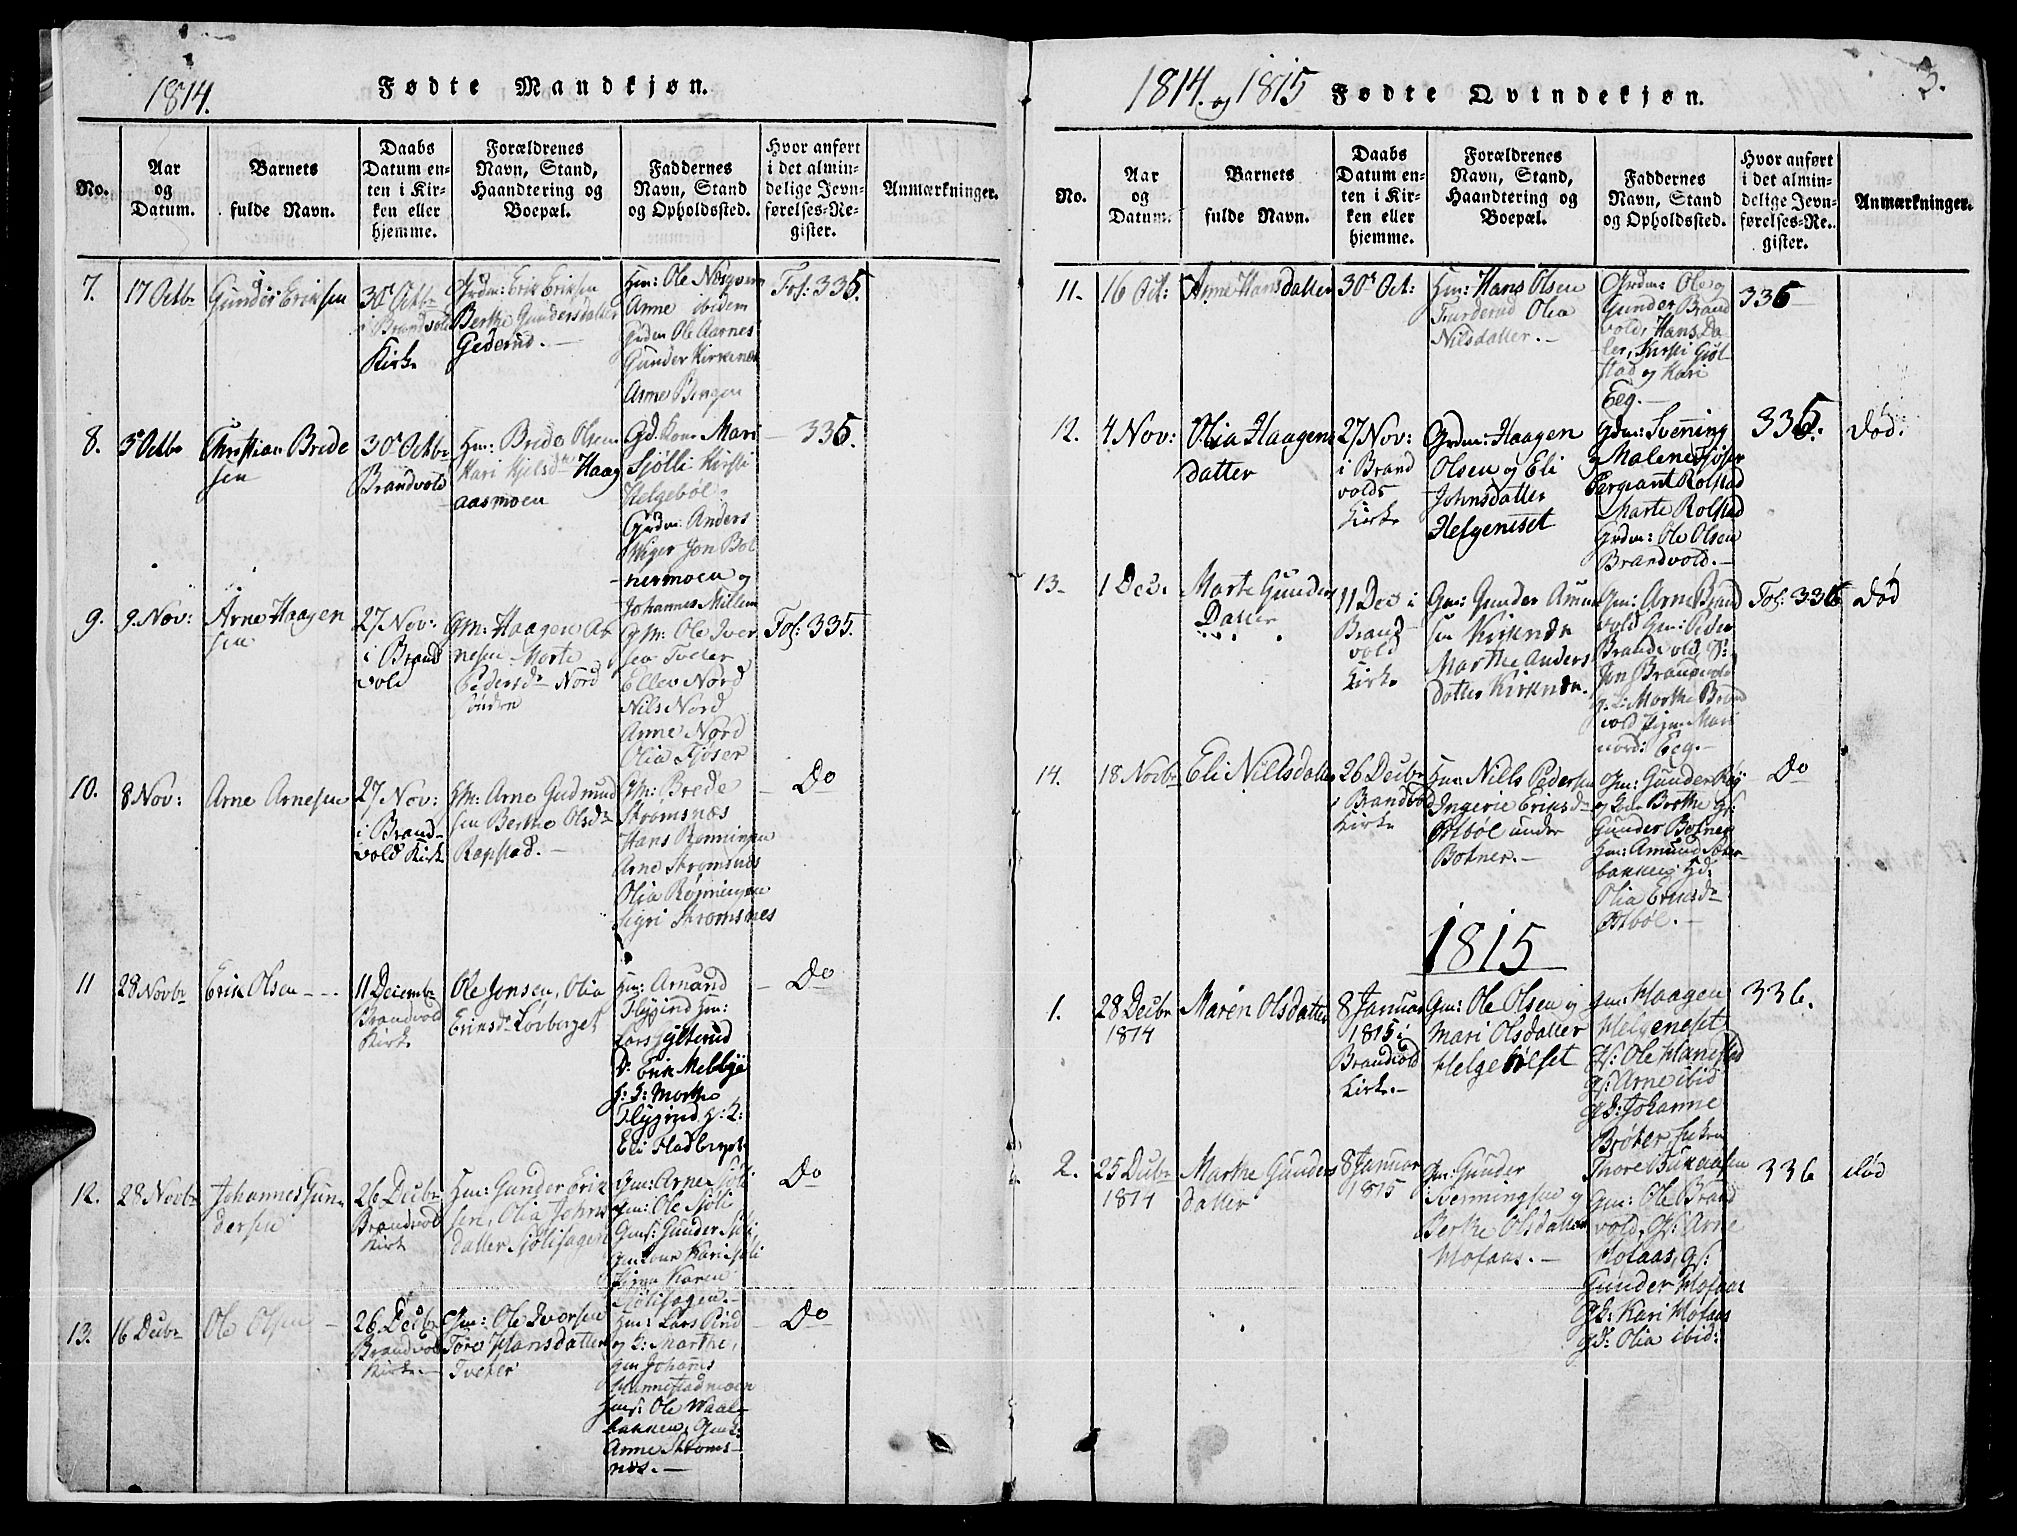 1814.
Fødte Mandkjøn.
No.
Aar og Datum.
Barnets fulde Navn.
Daabs Datum enten i Kirken eller hjemme.
Forældrenes Navn, Stand, Haandtering og Boepæl.
Faddernes Navn, Stand og Opholdssted.
Hvor anført i det almindelige Jevnførelses-Register.
Anmærkninger.
7.
17 Octbr
Gunder Eriksen
30te Octbr
i Brandvold
Kirke
Grdm: Erik Eriksen
Berthe Gundersdatter
Gederud. —
Hm: Ole
Arne ibidem
Grdm Ole Aarnes
Gunder Kirkenær
Arne
Fol: 335.
8.
3de Octbr
Christian Brede
sen
30te Octbr
Brandvold
Hm: Brede Olsen
Kari
aasmoen
Gd. Kone Mari
Sjølli Kirsti
Helgebøl
Grdm: Anders
Jon Bot
nermoen og
Johannes
335.
9.
9. Nov:
Arne Haagen
sen
27 Nov:
i Brand
vold
GM: Haagen Ar
nesen — Marte
Pedersdr Nord
GM: Ole Iver
sen Tveter
Ellev Nord
Nils Nord
Anne Nord
Olia Fjøser
Fol: 335.
10.
8 Nov:
Arne Arnesen
27 Nov:
i Brand-
vold Kirke
GM: Arne Gudmund
sen Berthe Olsdr
Ropstad. —
GM: Brede
Strømsnæs
Hans Rønningen
Arne Strømsnæs
Olia Rønningen
Sigri Strømsnes
Do
11
28 Novbr
Erik Olsen
11 Decembr
Brandvold
Kirke
Ole Jonsen, Olia
Eriksdr Løvberget
Hm: Amund
Flygind Hm:
Lars
D: Erik Mellbye
H: K: Marthe
Flygind H: K:
Eli Fladberget
Do
12.
28 Novbr
Johannes Gun
dersen
26 Decbr
Brandvold
Kirk
Hm: Gunder Erik
sen, Olia Johns
datter Sjølisagen
Gm: Arne Sjøli
Gm: Ole Sjøli
Gms: Gunder Sjøli
Gm: kone Kari Sjøli
Pigen Karen
Sjølisagen. —
Do
13.
16 Decbr
Ole Olsen
26 Decbr
Brandvold
Kirke. —
Gm: Ole Iversen
Tore Hansdatter
Tveter
Hm: Lars
og K: Marthe,
Gm Johannes
Hannestadmoen
Hms: Ole
bakken, Gm K:
Anne Strøms-
næs. —
Do
1814. og 1815
Fødte Qvindekjøn.
3.
No.
Aar og Datum.
Barnets fulde Navn.
Daabs Datum enten i Kirken eller hjemme.
Forældrenes Navn, Stand, Haandtering og Boepæl.
Faddernes Navn, Stand og Opholdssted.
Hvor anført i det almindelige Jevnførelses-Register.
Anmærkninger.
11.
16 Oct:
Anne Hansdatter
30te Oct:
Hm: Hans Olsen
Furderud Olia
Nilsdatter. —
Grdm: Ole og
Gunder Brand
vold, Hans
Kirsti
stad og Kari
Eeg. —
335
12.
4 Nov:
Olia Haagens
datter
27 Nov:
i Brand
volds
Kirke
Grdm: Haagen
Olsen og Eli
Johnsdatter
Helgeneset
Grdm: Svenning
og Malene Fjøser
Sergiant Rolstad
Marte Rolstad
Grdm: Ole Olsen
Brandvold. —
335.
død.
13.
1 Dec.
Marte Gunders
Datter
11 Dec i
Brand
vold
Kirke
Gm: Gunder Amund
sen Kirkenær
Marthe Anders
datter Kirkenær.
Gm: Arne Brand
vold Gm: Peder
Brandvold
Jon Brandvold
Marthe Brand
vold Pigen Mari
Eeg. —
Fol: 336
død
14.
18 Novbr
Eli Nillsdatter
26 Decbr
i Brandvold
Kirke
Hm: Nills Pedersen
Ingerie Eriksdr
Østbøl under
Botner. —
Gm: Gunder
og kone Berthe
Gunder Botner
Hm: Amund
bakken
Olia Eriksdr
Østbøl. —
Do
1815
1.
28 Decbr
1814
Maren Olsdatter
8 Januar
1815 i
Brandvold
Kirke. —
Gm: Ole Olsen og
Mari Olsdatter
Helgeneset
Gm: Haagen
Helgeneset
Gs: Ole Hanestad
Gs: Arne ibid
Gd: Johanne
336.
2.
25 Decbr
1814
Marthe Gunders
datter
8 Januar
1815
Gm: Gunder
Svenningsen og
Berthe Olsdatter
Hofaas. —
Thore
Gm: Ole Brand
vold, Gs: Arne
Hofaas, Gs:
Gunder Hofaas
Gd: Kari Hofaas
Gd: Olia ibid:
336
død